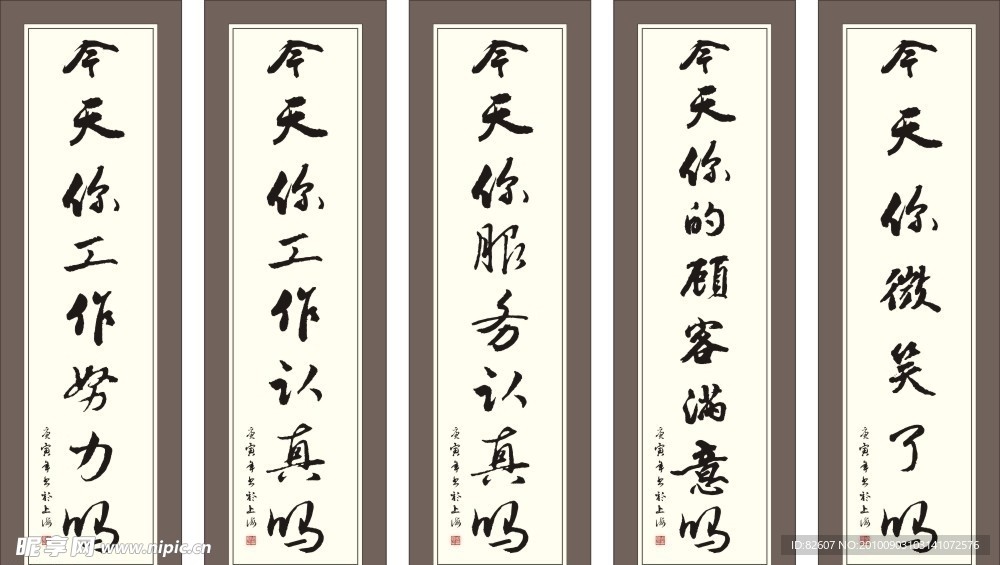 今天你工作努力吗
庚寅年书于上海
今天你工作认真吗
今天你服务认真吗
庚寅年书于上海
今天你的顾客满意吗
庚寅年书于上海
今天你微笑了吗
庚寅年书于上海
昵享网 www.nipic.cn
ID:82607 NO:20100903103141072576